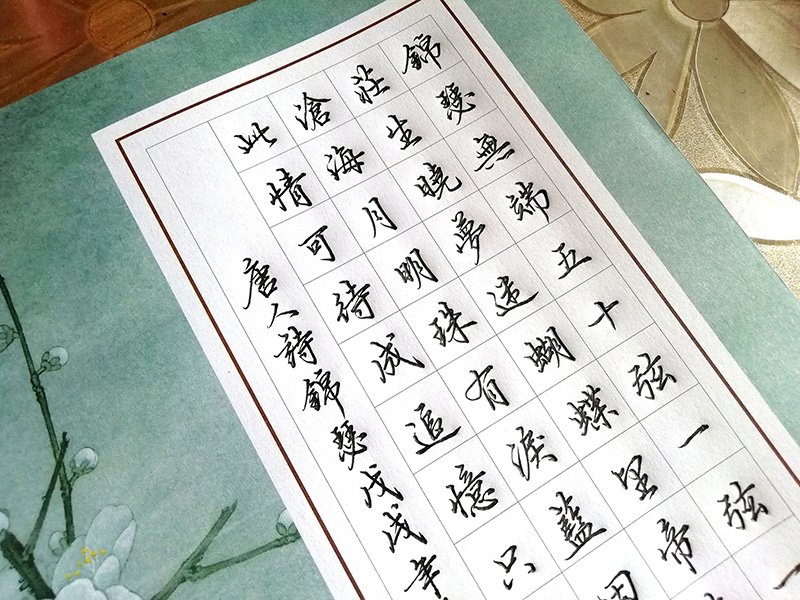 錦瑟無端五十弦一弦一
莊生曉夢迷蝴蝶望帝
滄海月明珠有淚藍
此情可待成追憶只
唐人詩錦瑟戊戌年